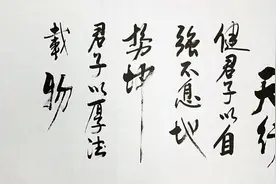 天行
健君子以自
強不息地
势坤
君子以厚德
載物